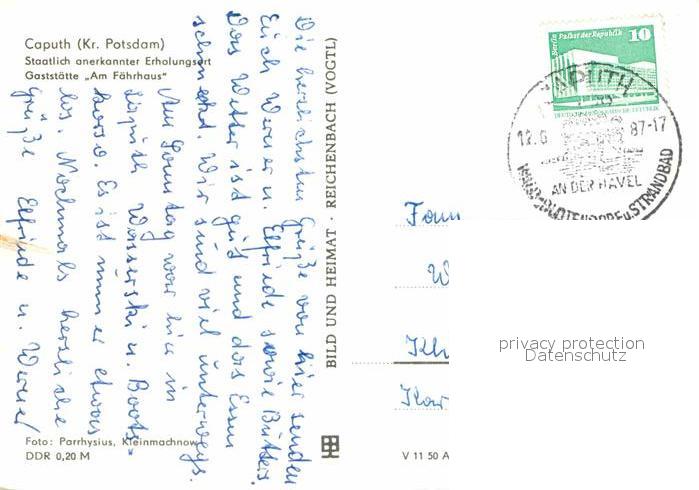 Caputh (Kr. Potsdam)
Staatlich anerkannter Erholungsort
Gaststätte „Am Fährhaus"
Die herzlichsten Grüße von hier senden
Euch Werner u. Elfriede sowie
Das Wetter ist gut und das Essen
schmeckt. Wir sind viel unterwegs.
Am Sonntag war hier in
Caputh Wasserski u. Boots-
korso. Es ist immer etwas
los. Nochmals herzliche
Grüße Elfriede u. Werner
Foto: Parrhysius, Kleinmachnow
DDR 0,20 M
BILD UND HEIMAT · REICHENBACH (VOGTL)
V 11 50 A
Berlin Palast der Republik
10
CAPUTH
12.6
87-17
AN DER HAVEL
STRANDBAD
Fam
W
Kh
Kar
privacy protection
Datenschutz